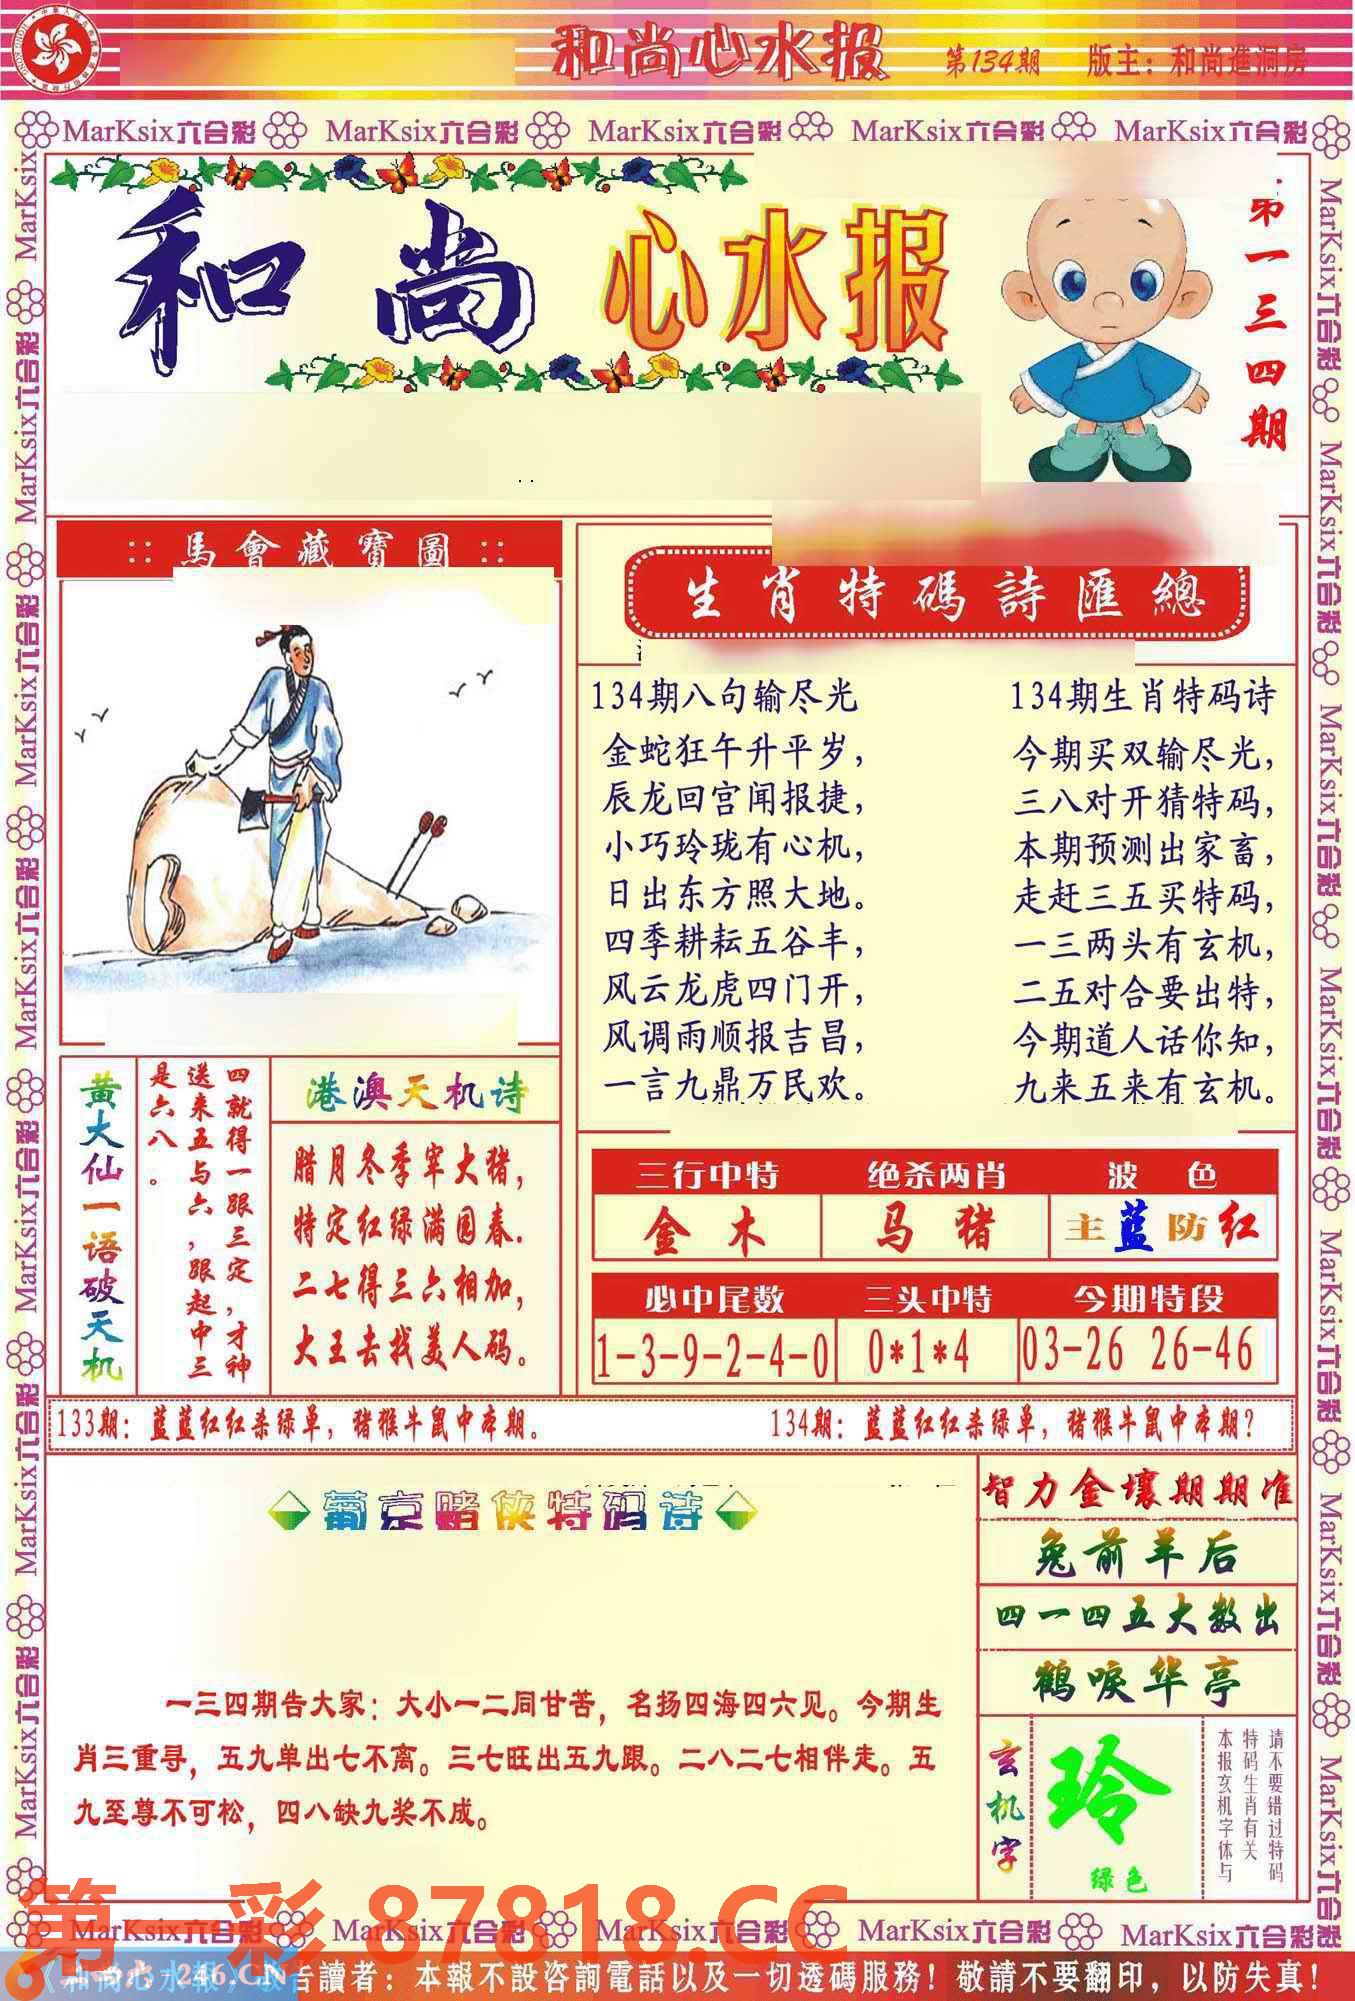 和尚心水报
第134期
版主：和尚進洞房
MarKsix六合彩 MarKsix六合彩 MarKsix六合彩 MarKsix六合彩 MarKsix六合彩
和尚心水报
第一三四期
馬會藏寶圖
生肖特碼詩匯總
134期八句输尽光
金蛇狂午升平岁，
辰龙回宫闻报捷，
小巧玲珑有心机，
日出东方照大地。
四季耕耘五谷丰，
风云龙虎四门开，
风调雨顺报吉昌，
一言九鼎万民欢。
134期生肖特码诗
今期买双输尽光，
三八对开猜特码，
本期预测出家畜，
走赶三五买特码，
一三两头有玄机，
二五对合要出特，
今期道人话你知，
九来五来有玄机。
黄大仙一语破天机
四就得一跟三定，才神
送来五与六，跟起中三
是六八。
港澳天机诗
腊月冬季宰大猪，
特定红绿满园春.
二七得三六相加，
大王去找美人码。
三行中特 绝杀两肖 波 色
金 木 马 猪 主蓝防红
必中尾数 三头中特 今期特段
1-3-9-2-4-0 0*1*4 03-26 26-46
133期：蓝蓝红红杀绿单，猪猴牛鼠中本期。
134期：蓝蓝红红杀绿单，猪猴牛鼠中本期？
葡京赌侠特码诗
一三四期告大家：大小一二同甘苦，名扬四海四六见。今期生
肖三重寻，五九单出七不离。三七旺出五九跟。二八二七相伴走。五
九至尊不可松，四八缺九奖不成。
智力金壤期期准
兔前羊后
四一四五大数出
鹤唳华亭
玄机字
玲
绿色
请不要错过特码
特码生肖有关
本报玄机字体与
第一彩 87818.CC
MarKsix六合彩 MarKsix六合彩 MarKsix六合彩 MarKsix六合彩 MarKsix六合彩
246.CN
告讀者：本報不設咨詢電話以及一切透碼服務！敬請不要翻印，以防失真！